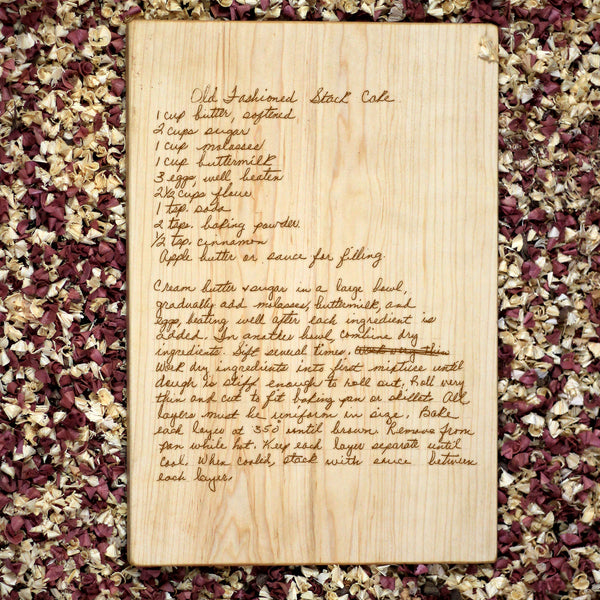 Old Fashioned Stack Cake
1 cup butter, softened
2 cups sugar
1 cup molasses
1 cup buttermilk
3 eggs, well beaten
2½ cups flour
1 tsp. soda
2 tsps. baking powder
½ tsp. cinnamon
Apple butter or sauce for filling.
Cream butter & sugar in a large bowl,
gradually add molasses, buttermilk, and
eggs, beating well after each ingredient is
added. In another bowl, combine dry
ingredients. Sift several times. work very thin
Work dry ingredients into first mixture until
dough is stiff enough to roll out. Roll very
thin and cut to fit baking pan or skillets. All
layers must be uniform in size. Bake
each layer at 350 until brown. Remove from
pan while hot. Keep each layer separate until
cool. When cooled, stack with sauce between
each layer.